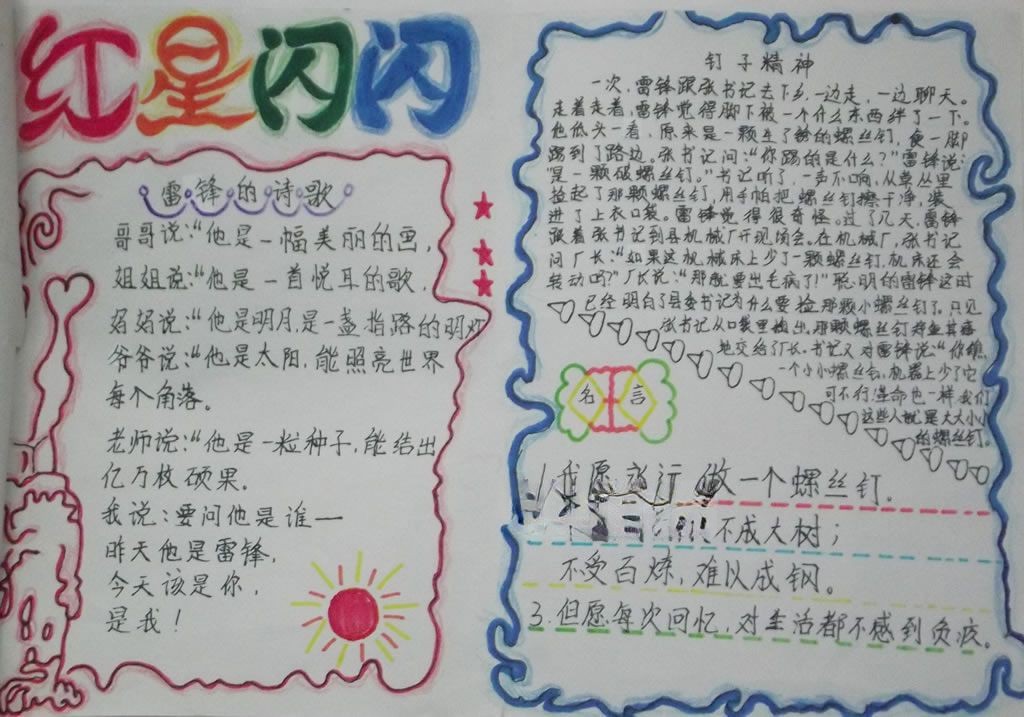 红星闪闪
雷锋的诗歌
哥哥说:“他是一幅美丽的画,
姐姐说:“他是一首悦耳的歌,
妈妈说:“他是明月,是一盏指路的明灯
爷爷说:“他是太阳,能照亮世界
每个角落。
老师说:“他是一粒种子,能结出
亿万枚硕果。
我说:要问他是谁——
昨天他是雷锋,
今天该是你,
是我!
钉子精神
一次,雷锋跟张书记去下乡,一边走,一边聊天。
走着走着,雷锋觉得脚下被一个什么东西绊了一下。
他低头一看,原来是一颗生了锈的螺丝钉,便一脚
踢到了路边。张书记问:“你踢的是什么?”雷锋说:
“是一颗破螺丝钉。”书记听了,一声不响,从草丛里
捡起了那颗螺丝钉,用手帕把螺丝钉擦干净,装
进了上衣口袋。雷锋觉得很奇怪。过了几天,雷锋
跟着张书记到县机械厂开现场会。在机械厂,张书记
问厂长:“如果这机械床上少了一颗螺丝钉,机床还会
转动吗?”厂长说:“那就要出毛病了!”聪明的雷锋这时
已经明白了县委书记为什么要捡那颗小螺丝钉了。只见
张书记从口袋里掏出那颗螺丝钉郑重其事
地交给了厂长。书记又对雷锋说:“你瞧,
一个小小螺丝钉,机器上少了它
可不行,革命也一样,我们
这些人就是大大小小
的螺丝钉。
名言
1.我愿 做一个螺丝钉。
不成大树;
不受百炼,难以成钢。
3.但愿每次回忆,对生活都不感到负疚。